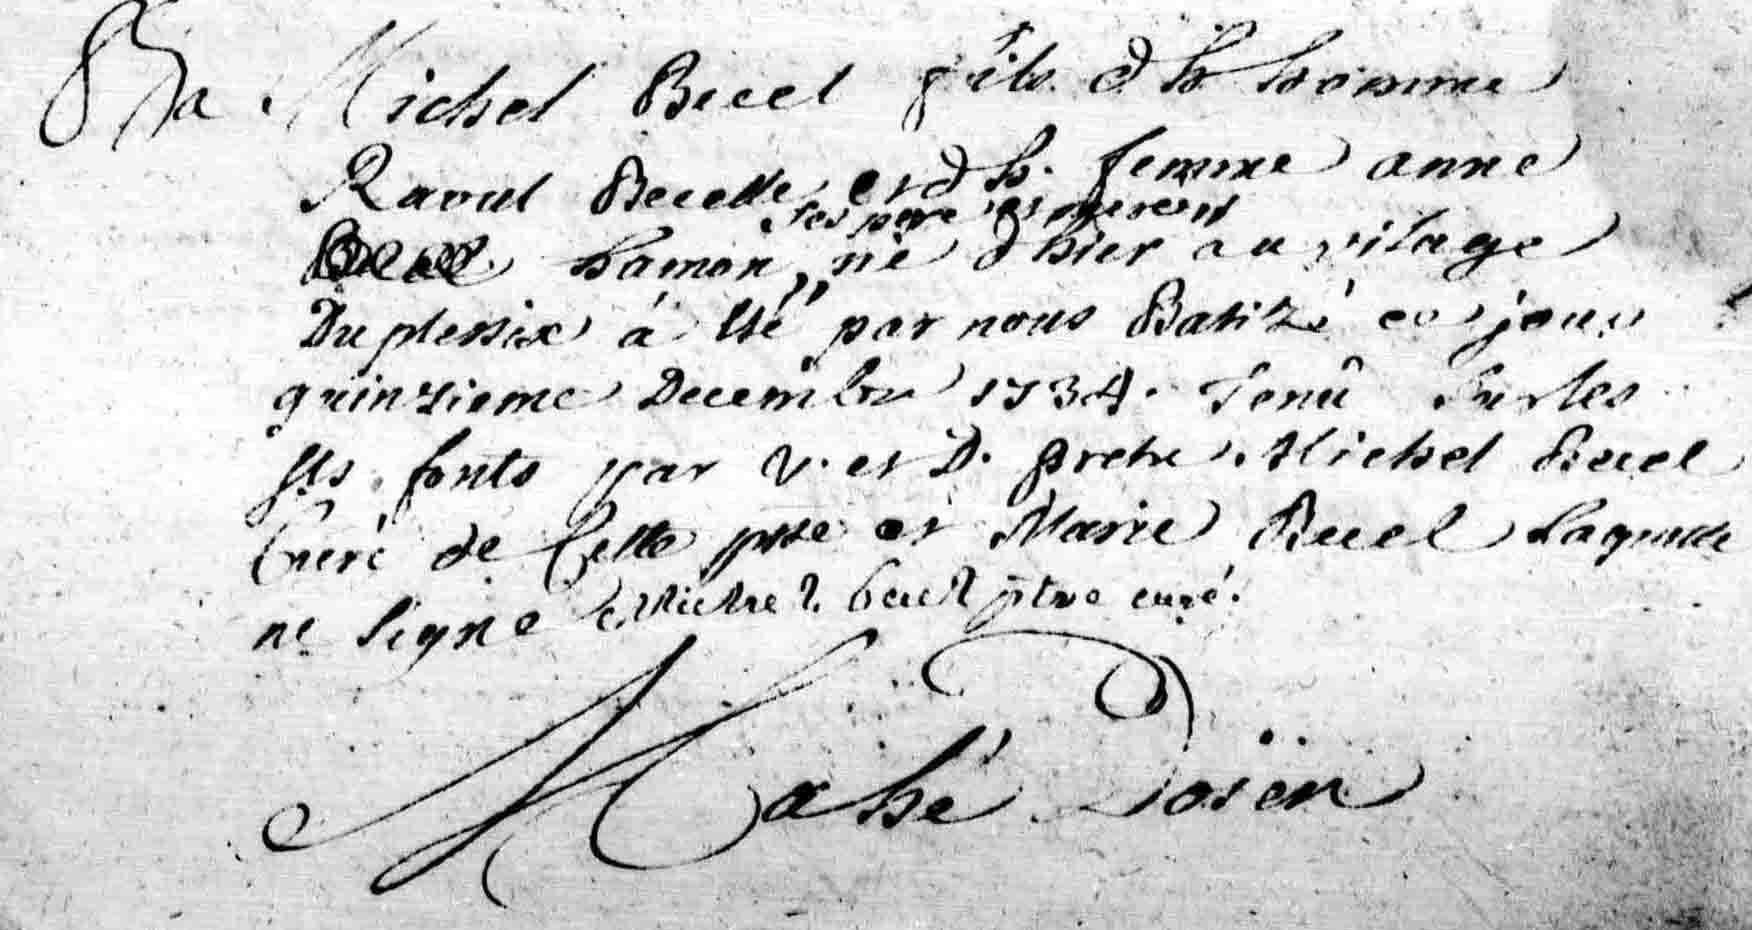 Ba Michel Becel fils d'h homme
Raoul Becelle et d h. femme anne
ses pere et mere
hamon, né d'hier au vilage
Duplessix á été par nous Batizé ce jour
quinzieme Decembre 1734. Tenû sur les
sts fonts par V. et D. pretre Michel Becel
Curé de Cette psse et Marie Becel Laquelle
ne Signe Michel becel ptre curé.
Mahé Doïen